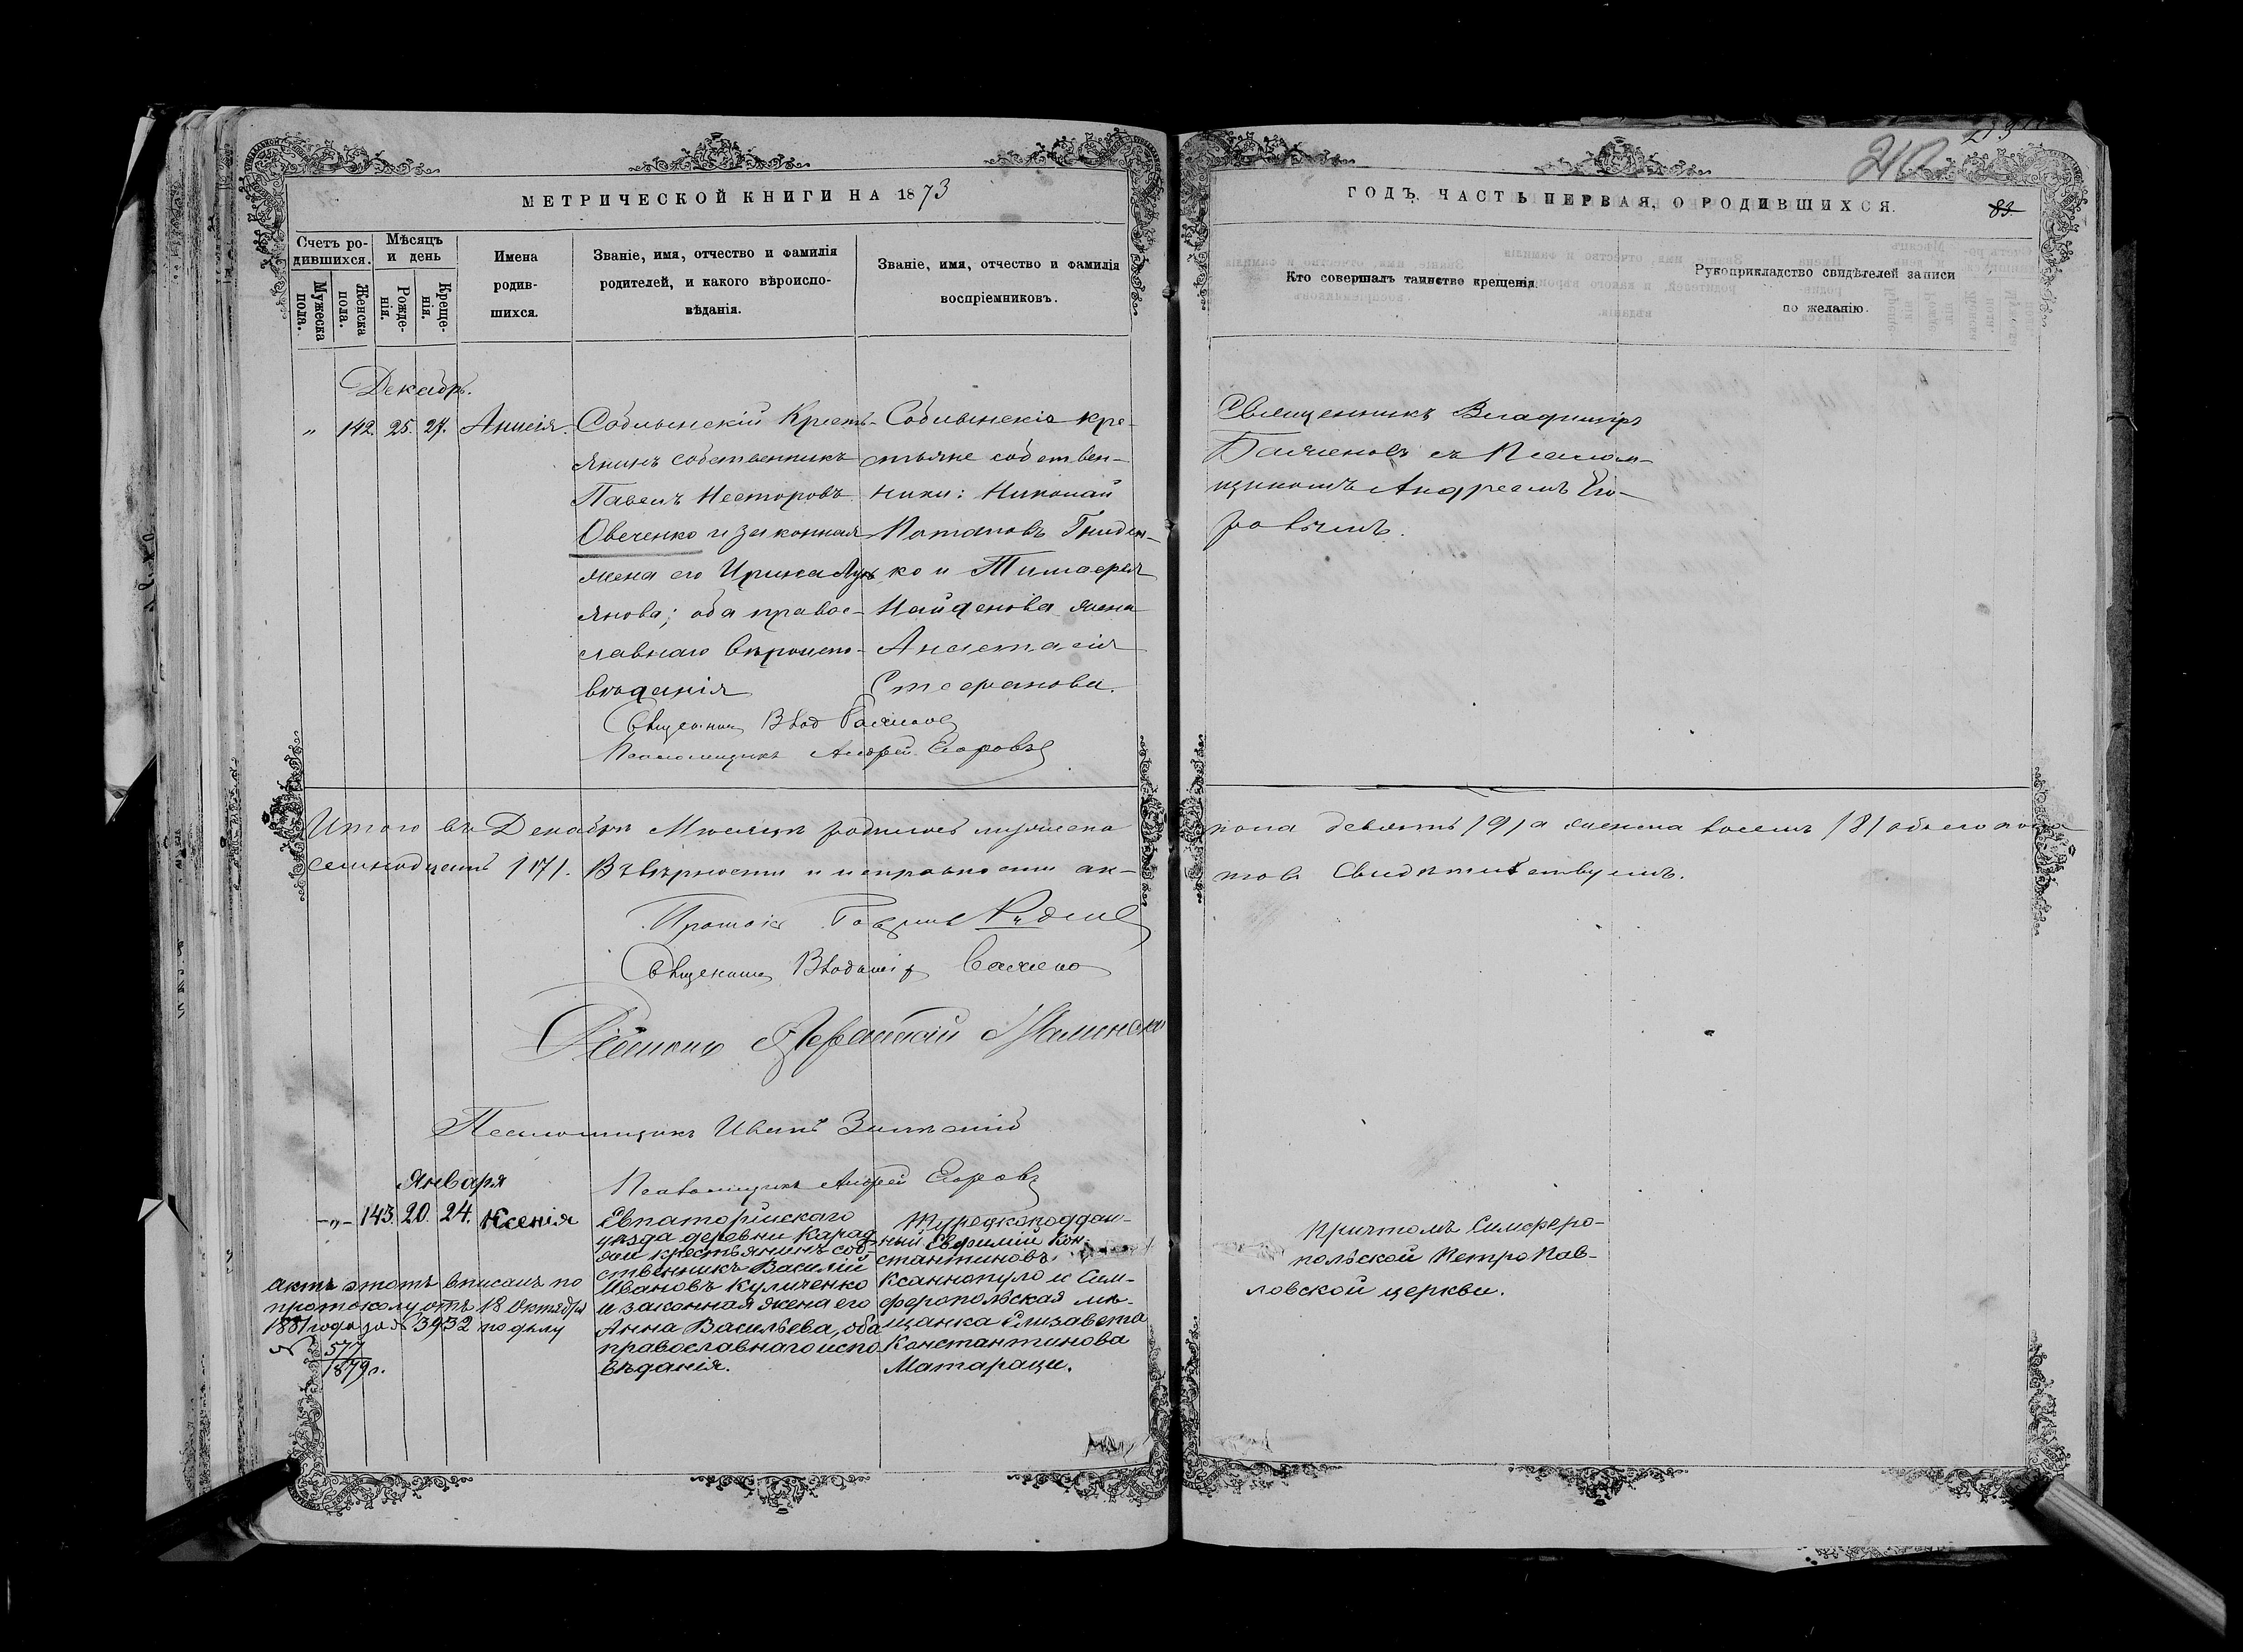 МЕТРИЧЕСКОЙ КНИГИ НА 1873
ГОДЪ, ЧАСТЬ ПЕРВАЯ, О РОДИВШИХСЯ.
83.
Счетъ ро-
дившихся.
Мужеска пола.
Женска пола.
Мѣсяцъ
и день
Рожде-
нія.
Креще-
нія.
Имена
родив-
шихся.
Званіе, имя, отчество и фамилія
родителей, и какого вѣроиспо-
вѣданія.
Званіе, имя, отчество и фамилія
воспріемниковъ.
Кто совершалъ таинство крещенія.
Рукоприкладство свидѣтелей записи
по желанію.
Декабр.
„ 142. 25. 27. Анисія.
Собственникъ
Павелъ Несторовъ
Овеченко и законная
жена его Ирина
янова; оба правос-
славнаго вѣроиспо-
вѣданія
кре-
стьяне собствен-
ники: Николай
Потаповъ Гниден-
ко и Тимофея
Найденова жена
Анастасія
Стефанова.
Священникъ Владиміръ
Баженовъ съ Псалом-
щикомъ Андреемъ Его-
ровымъ.
Священник Влад Баженов
Псаломщикъ Андрей Егоровъ
Итого въ Декабрѣ Мѣсяцѣ родилось мужеска
пола девять /9/ а женска восемь /8/ обоего пола
семнадцать /17/. Въ вѣрности и исправности ак-
товъ свидѣтельствуемъ.
Священник Владимір Баженов
Псаломщикъ Иванъ
Псаломщикъ Андрей Егоровъ
Января
-„- 143. 20. 24. Ксенія
Евпаторійскаго
уѣзда деревни Карад-
жи крестьянинъ соб-
ственникъ Василій
Ивановъ Куличенко
и законная жена его
Анна Васильева, оба
православнаго испо-
вѣданія.
Турецкоподдан-
ный Евфимій Кон-
стантиновъ
Ксаннопуло и Сим-
феропольская мѣ-
щанка Елизавета
Константинова
Матараци.
Причтомъ Симферо-
польской Петро Пав-
ловской церкви.
Актъ этотъ вписанъ по
протоколу отъ 18 Октября
1881 года за № 3932 по дѣлу
№ 577
1879 г.